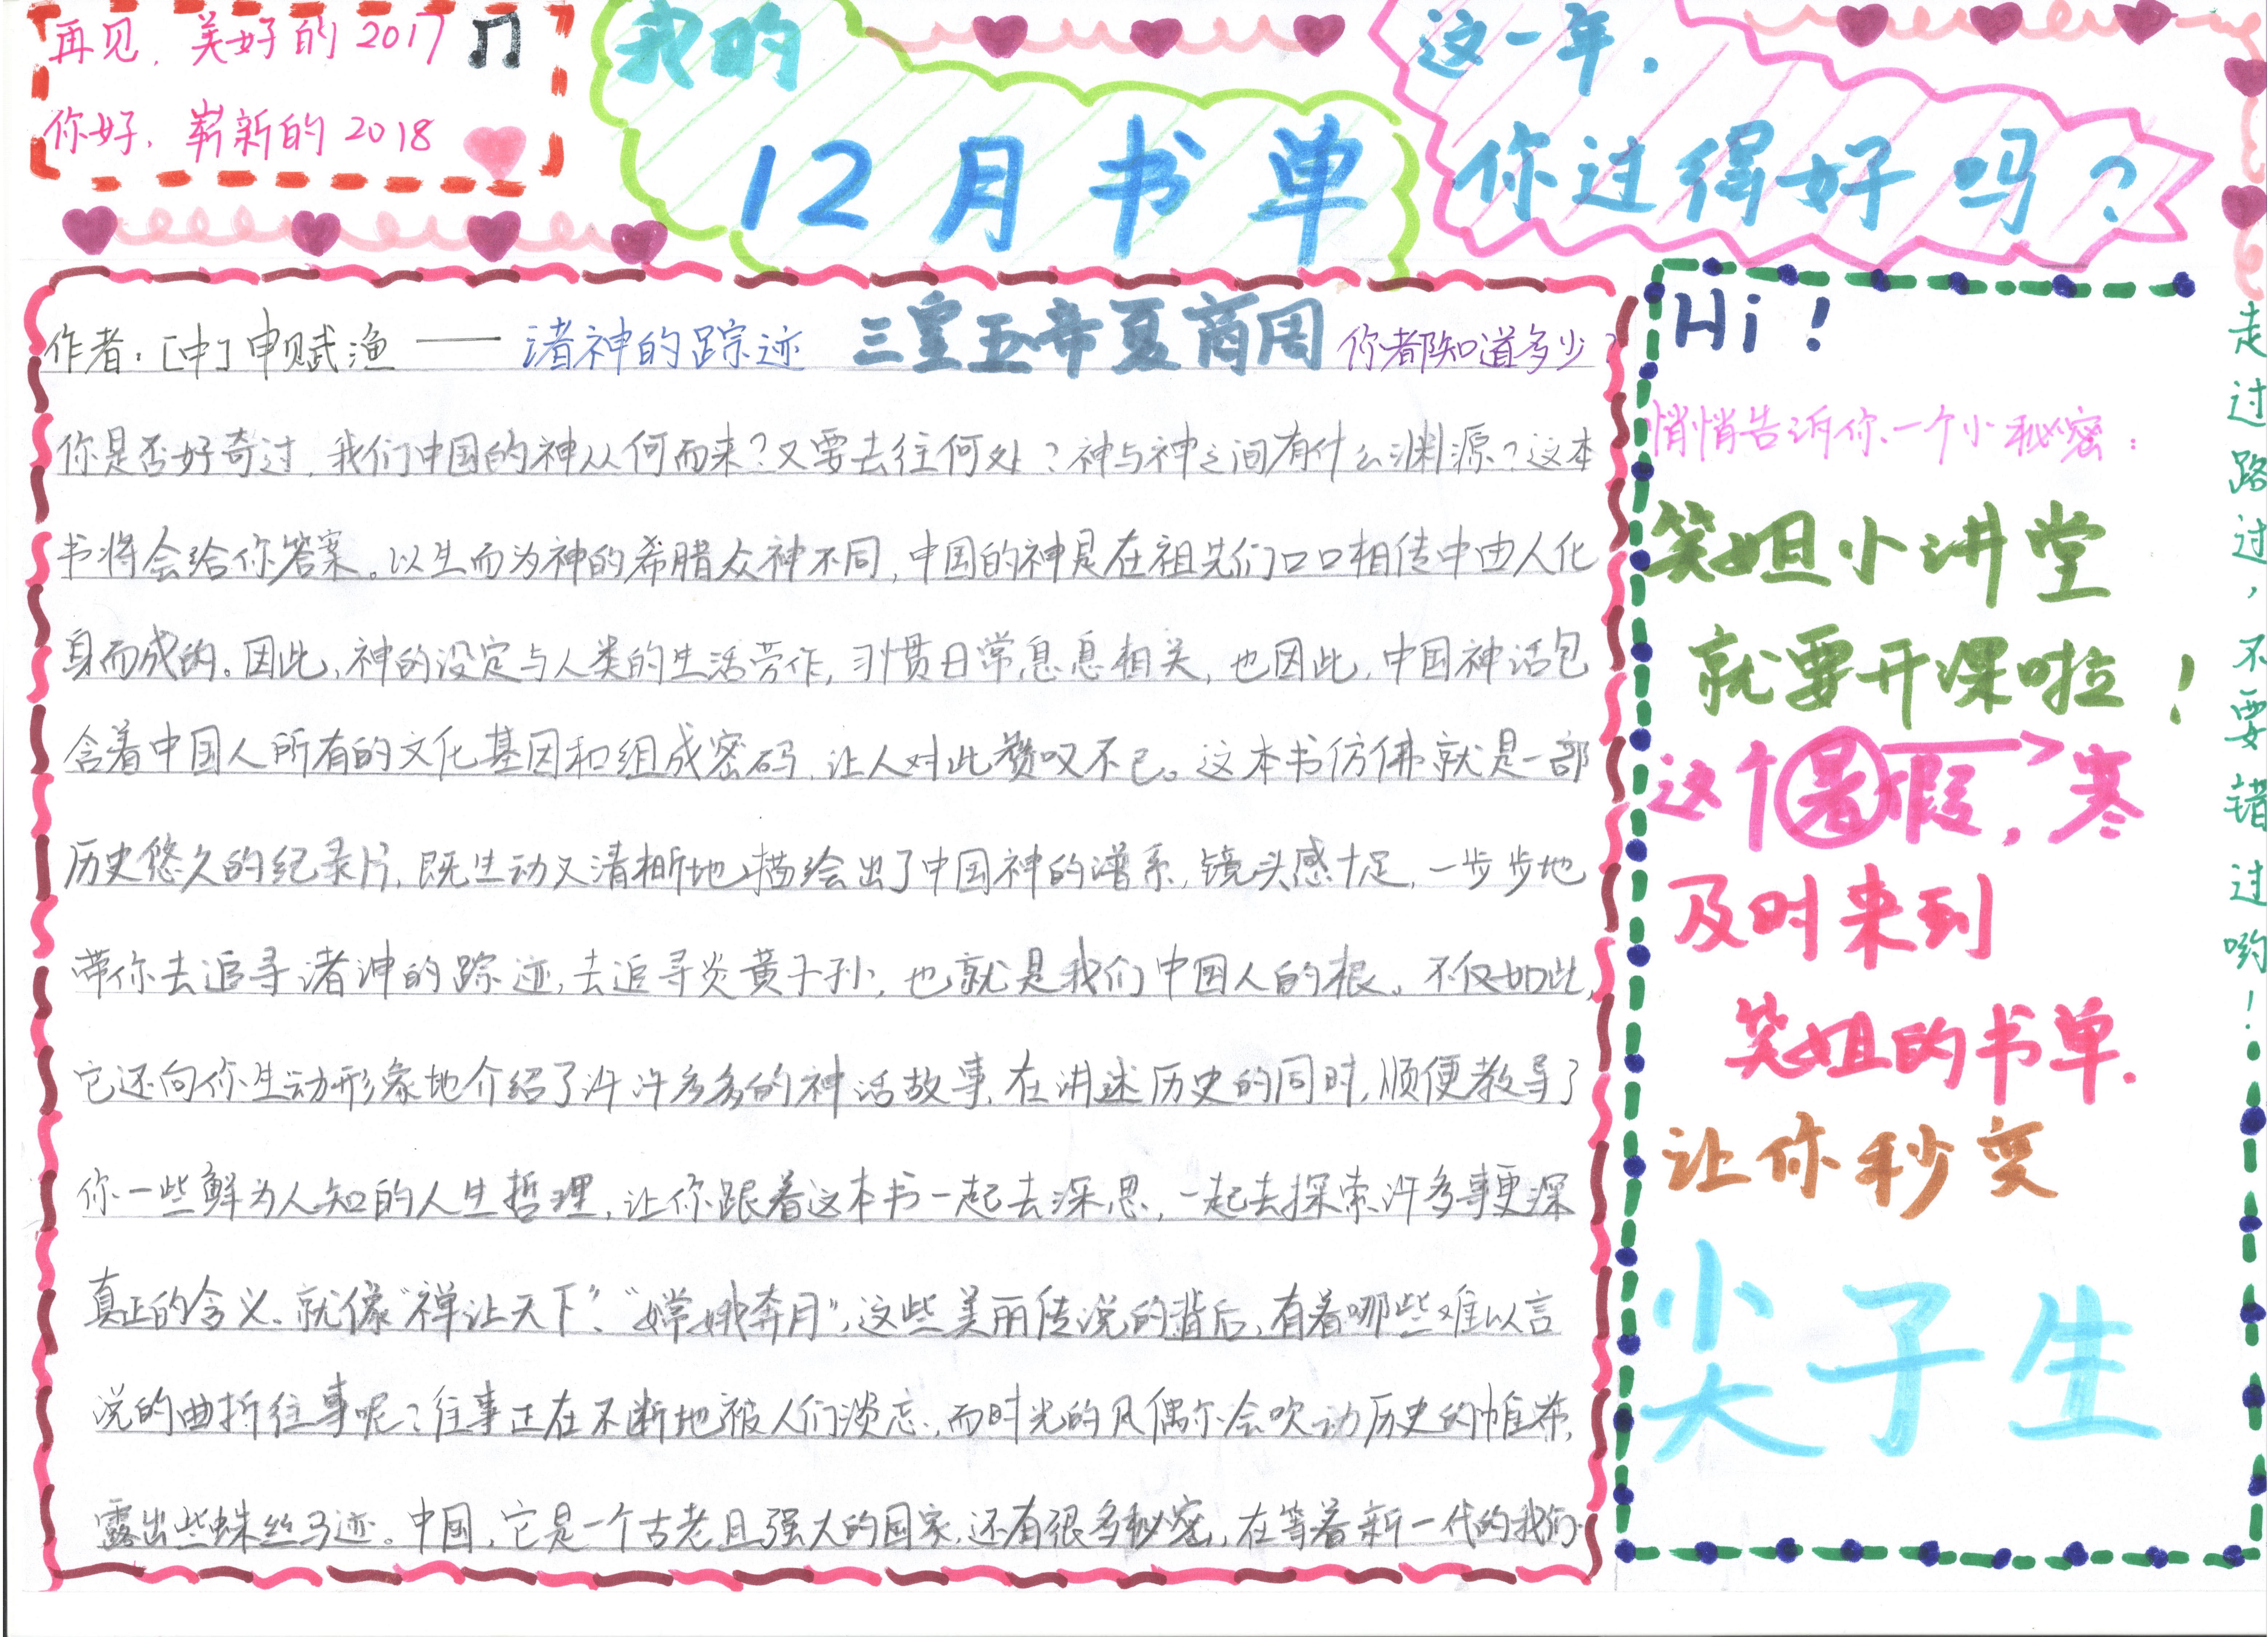 再见，美好的2017
你好，崭新的2018
我的
12月书单
这一年，
你过得好吗？
作者：[中]申赋渔——诸神的踪迹 三皇五帝夏商周 你都知道多少？
你是否好奇过，我们中国的神从何而来？又要去往何处？神与神之间有什么渊源？这本
书将会给你答案。以生而为神的希腊众神不同，中国的神是在祖先们口口相传中由人化
身而成的。因此，神的设定与人类的生活劳作，习惯日常息息相关，也因此，中国神话包
含着中国人所有的文化基因和组成密码，让人对此赞叹不已。这本书仿佛就是一部
历史悠久的纪录片，既生动又清晰地描绘出了中国神的谱系，镜头感十足，一步步地
带你去追寻诸神的踪迹，去追寻炎黄子孙，也就是我们中国人的根。不仅如此，
它还向你生动形象地介绍了许许多多的神话故事，在讲述历史的同时，顺便教导了
你一些鲜为人知的人生哲理，让你跟着这本书一起去深思，一起去探索许多事更深
真正的含义。就像“禅让天下”、“嫦娥奔月”，这些美丽传说的背后，有着哪些难以言
说的曲折往事呢？往事正在不断地被人们淡忘，而时光的风偶尔会吹动历史的帷幕，
露出些蛛丝马迹。中国，它是一个古老且强大的国家，还有很多秘密，在等着新一代的我们。
Hi！
悄悄告诉你一个小秘密：
笑姐小讲堂
就要开课啦！
这个暑假，寒
及时来到
笑姐的书单.
让你秒变
尖子生
走过路过，不要错过哟！